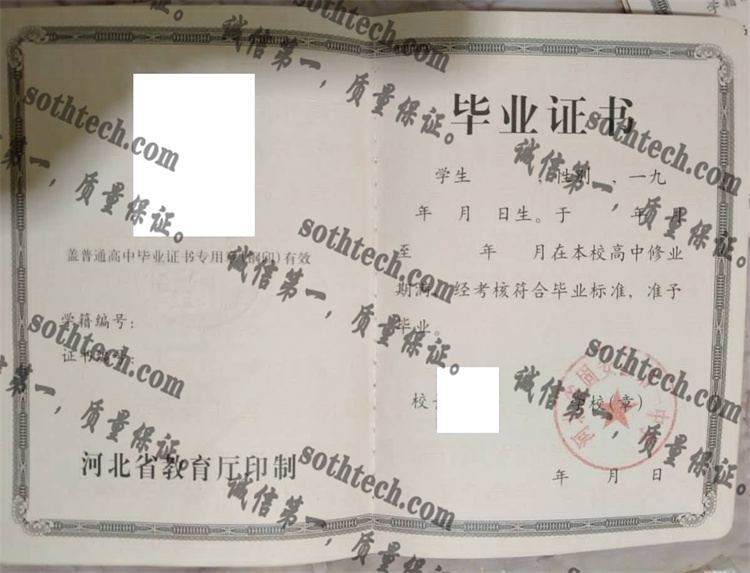 盖普通高中毕业证书专用章(钢印)有效
学籍编号:
证书编号:
河北省教育厅印制
毕业证书
学生 ,性别 ,一九
年 月 日生。于 年 月
至 年 月在本校高中修业
期满,经考核符合毕业标准,准予
毕业。
校长
学校(章)
年 月 日
sothtech.com
诚信第一,质量保证。
sothtech.com
诚信第一,质量保证。
sothtech.com
诚信第一,质量保证。
sothtech.com
诚信第一,质量保证。
sothtech.com
诚信第一,质量保证。
sothtech.com
诚信第一,质量保证。
sothtech.com
诚信第一,质量保证。
sothtech.com
诚信第一,质量保证。